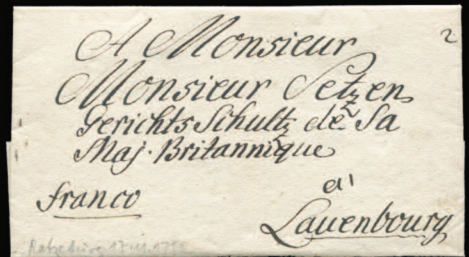 2
A Monsieur
Monsieur Setzen
Gerichts Schultz de Sa
Maj. Britannique
franco
a'
Lauenbourg